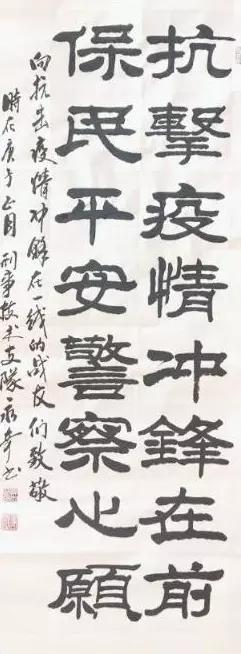 抗擊疫情冲鋒在前
保民平安警察心願
向抗击疫情冲鋒在一线的战友们致敬
時在庚子正月刑事技术支隊永幸书